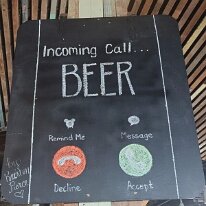 Incoming Call...
BEER
Remind Me Message
Decline Accept